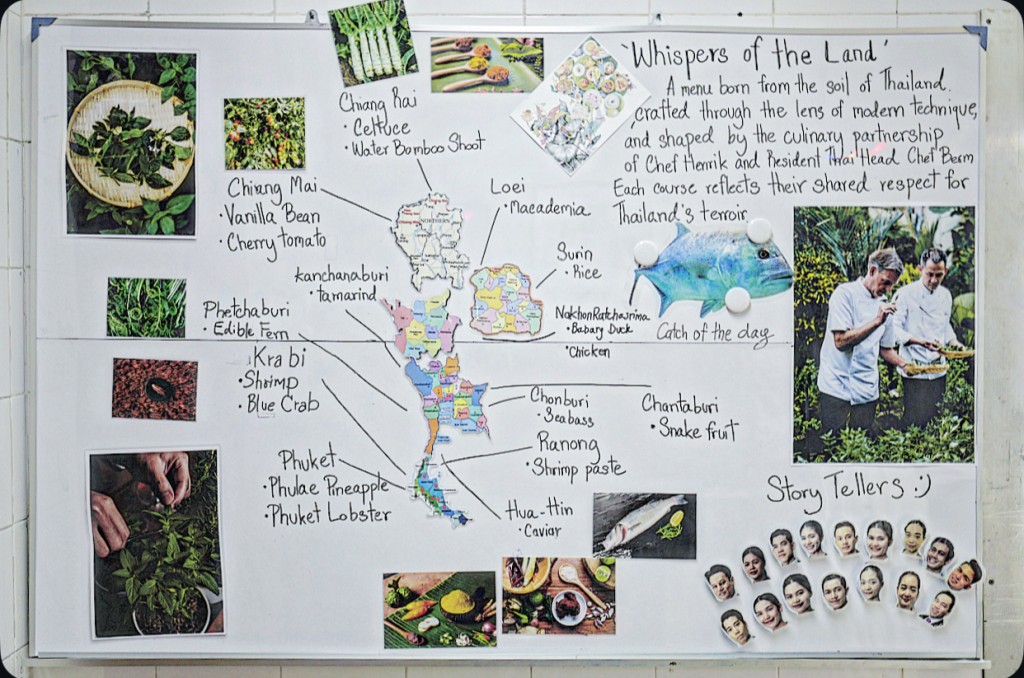 'Whispers of the Land'
A menu born from the soil of Thailand.
crafted through the lens of modern technique,
and shaped by the culinary partnership
of Chef Henrik and Resident Thai Head Chef Berm
Each course reflects their shared respect for
Thailand's terroir
Chiang Rai
• Celtuce
• Water Bamboo Shoot
Chiang Mai
• Vanilla Bean
• Cherry tomato
Loei
• Macademia
Surin
• Rice
kanchanaburi
• tamarind
Phetchaburi
• Edible Fern
NakhonRatchasrima
• Babary Duck
• Chicken
Catch of the day
Krabi
• Shrimp
• Blue Crab
Chonburi
• Seabass
Chantaburi
• Snake fruit
Ranong
• Shrimp paste
Phuket
• Phulae Pineapple
• Phuket Lobster
Hua-Hin
• Caviar
Story Tellers :)
NORTHERN